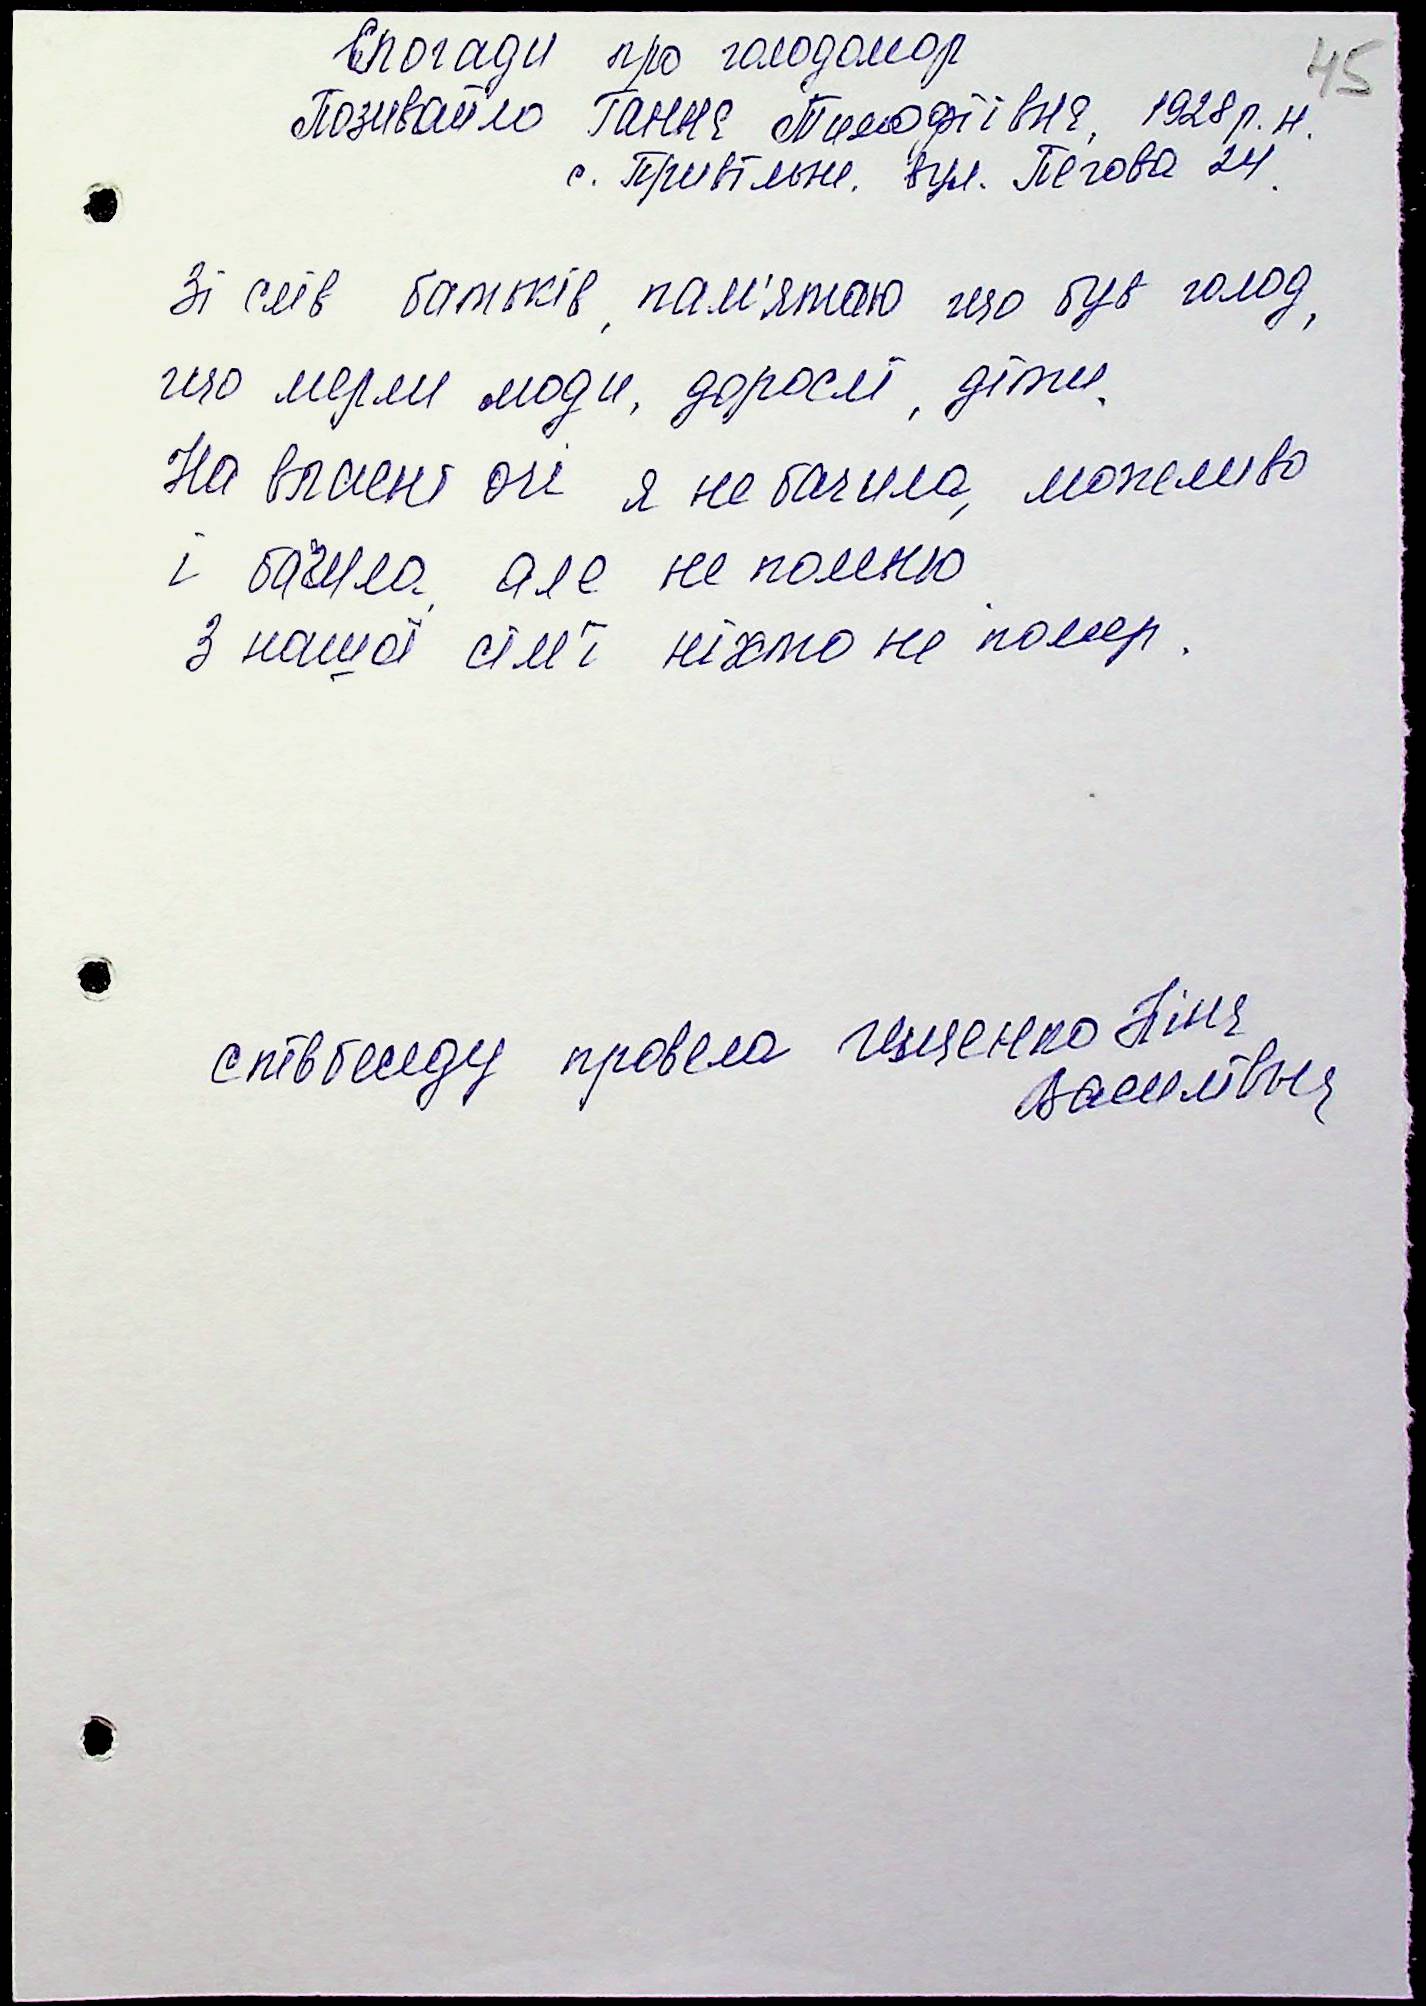 45
Спогади про голодомор
Позивайло Ганна Тимофіївна, 1928 р. н.
с. Привільне. вул. 24.
Зі слів батьків, пам'ятаю що був голод,
що мерли люди, дорослі, діти.
На власні очі я не бачила, можливо
і бачила, але не помню.
З нашої сім'ї ніхто не помер.
співбесіду провела Іщенко Ніна
Василівна